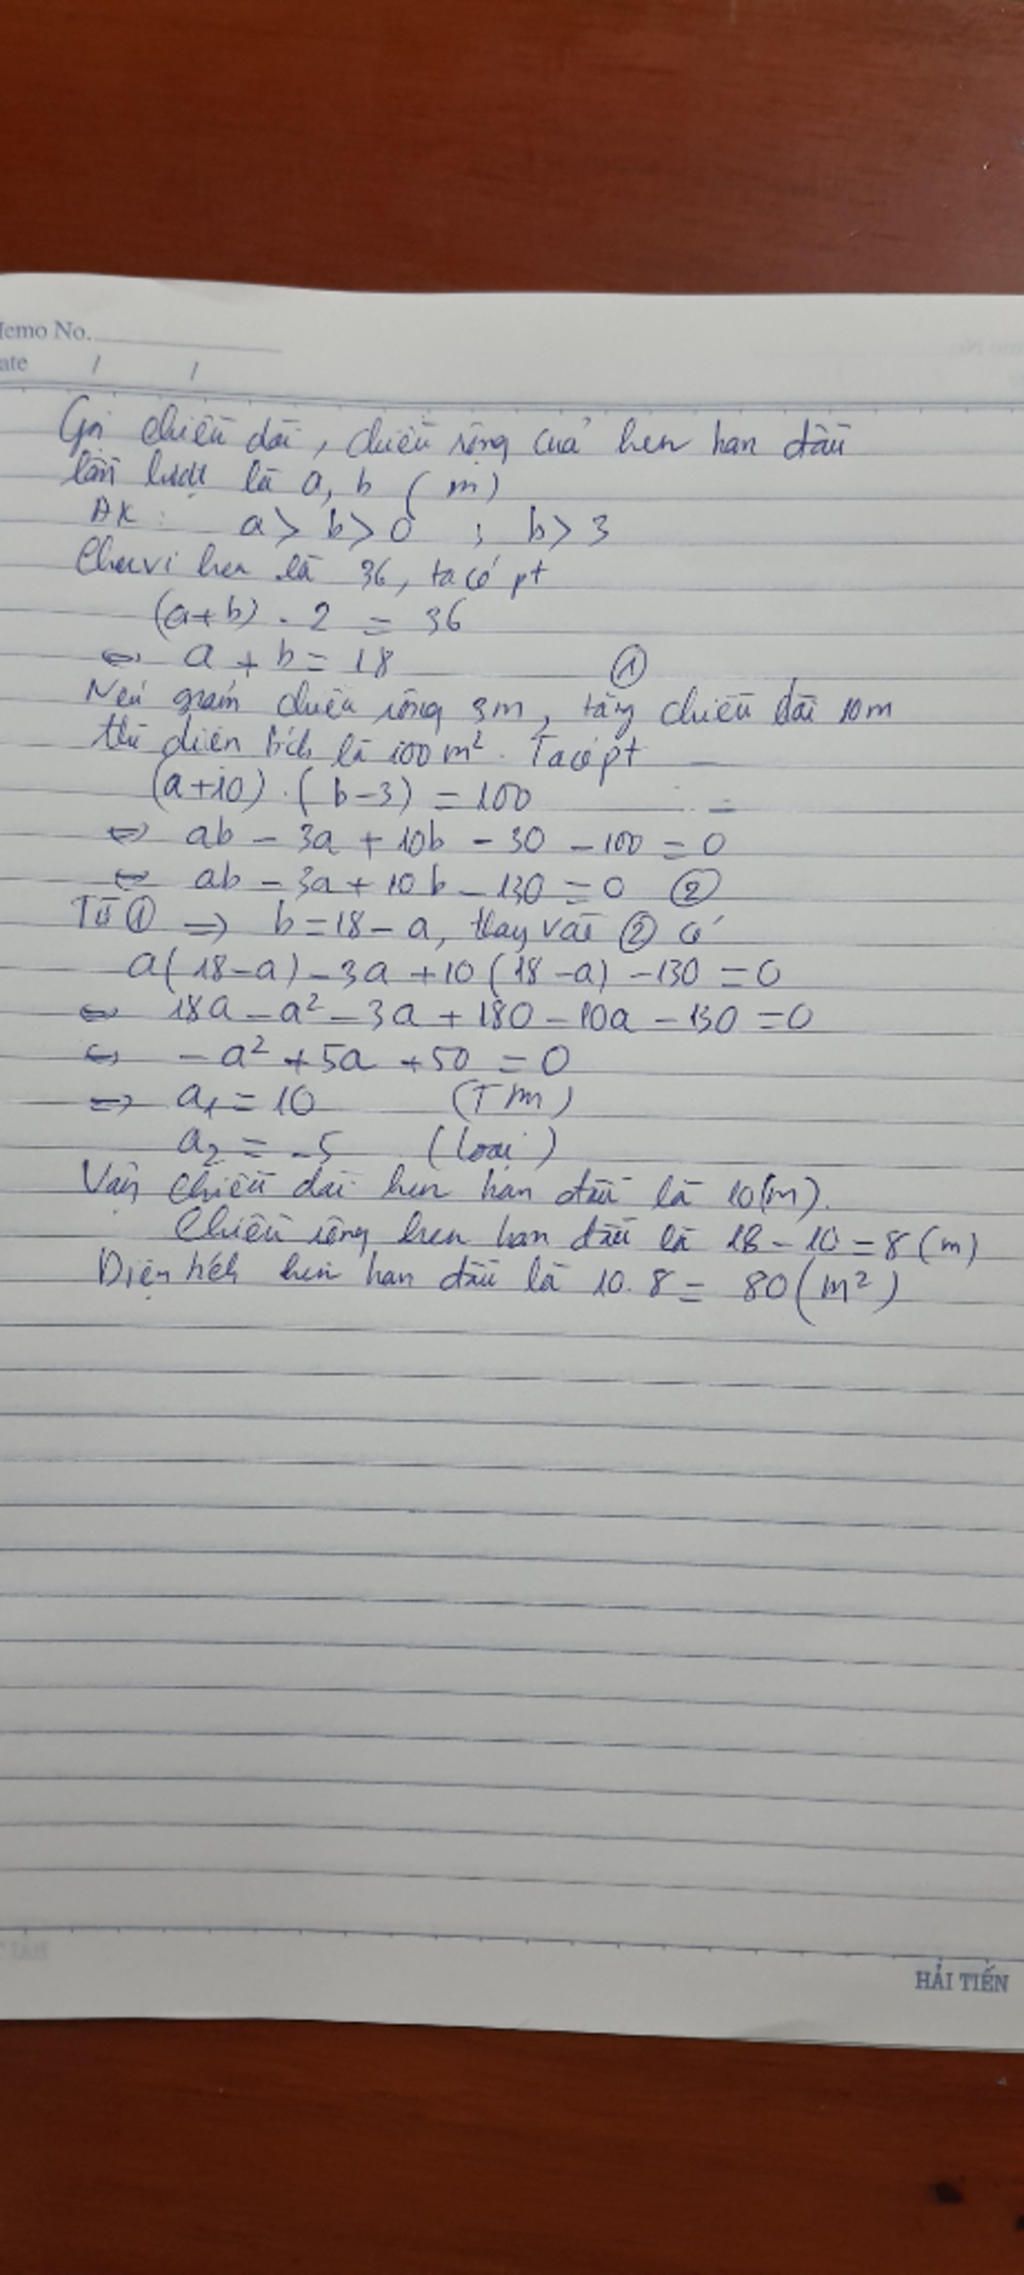 emo No.
ate / /
Gọi chiều dài, chiều rộng của hcn ban đầu
lần lượt là a, b (m)
ĐK: a > b > 0 ; b > 3
Chu vi hcn là 36, ta có pt
(a+b) . 2 = 36
⇔ a + b = 18 ①
Nếu giảm chiều rộng 3m, tăng chiều dài 10m
thì diện tích là 100 m². Ta có pt
(a+10) . (b-3) = 100
⇔ ab - 3a + 10b - 30 - 100 = 0
⇔ ab - 3a + 10b - 130 = 0 ②
Từ ① ⇒ b = 18 - a, thay vào ② có
a(18-a) - 3a + 10(18-a) - 130 = 0
⇔ 18a - a² - 3a + 180 - 10a - 130 = 0
⇔ -a² + 5a + 50 = 0
⇒ a₁ = 10 (TM)
a₂ = -5 (loại)
Vậy chiều dài hcn ban đầu là 10(m).
Chiều rộng hcn ban đầu là 18 - 10 = 8 (m)
Diện tích hcn ban đầu là 10.8 = 80 (m²)
HẢI TIẾN